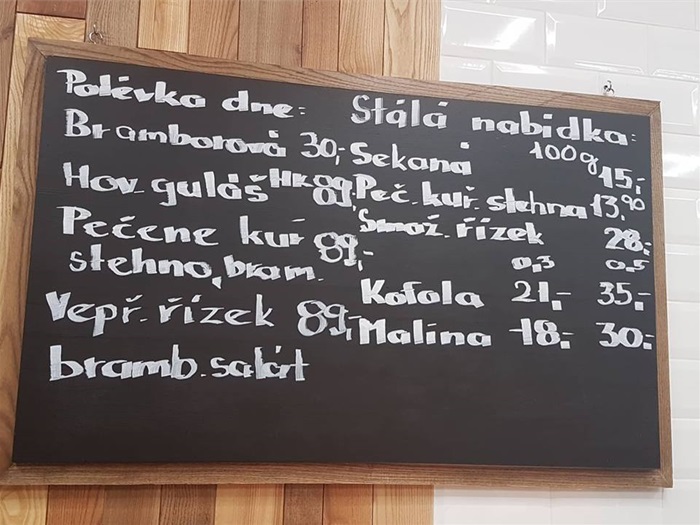 Polévka dne:
Bramborová 30,-
Hov. guláš HK 89,-
Pečene kuř
stehno, bram.
89,-
Vepř. řízek 89,-
bramb. salát
Stálá nabídka:
100g
Sekaná 15,-
Peč. kuř. stehna 13,90
Smaž. řízek 28,-
0,3 0,5
Kofola 21,- 35,-
Malina 18,- 30,-